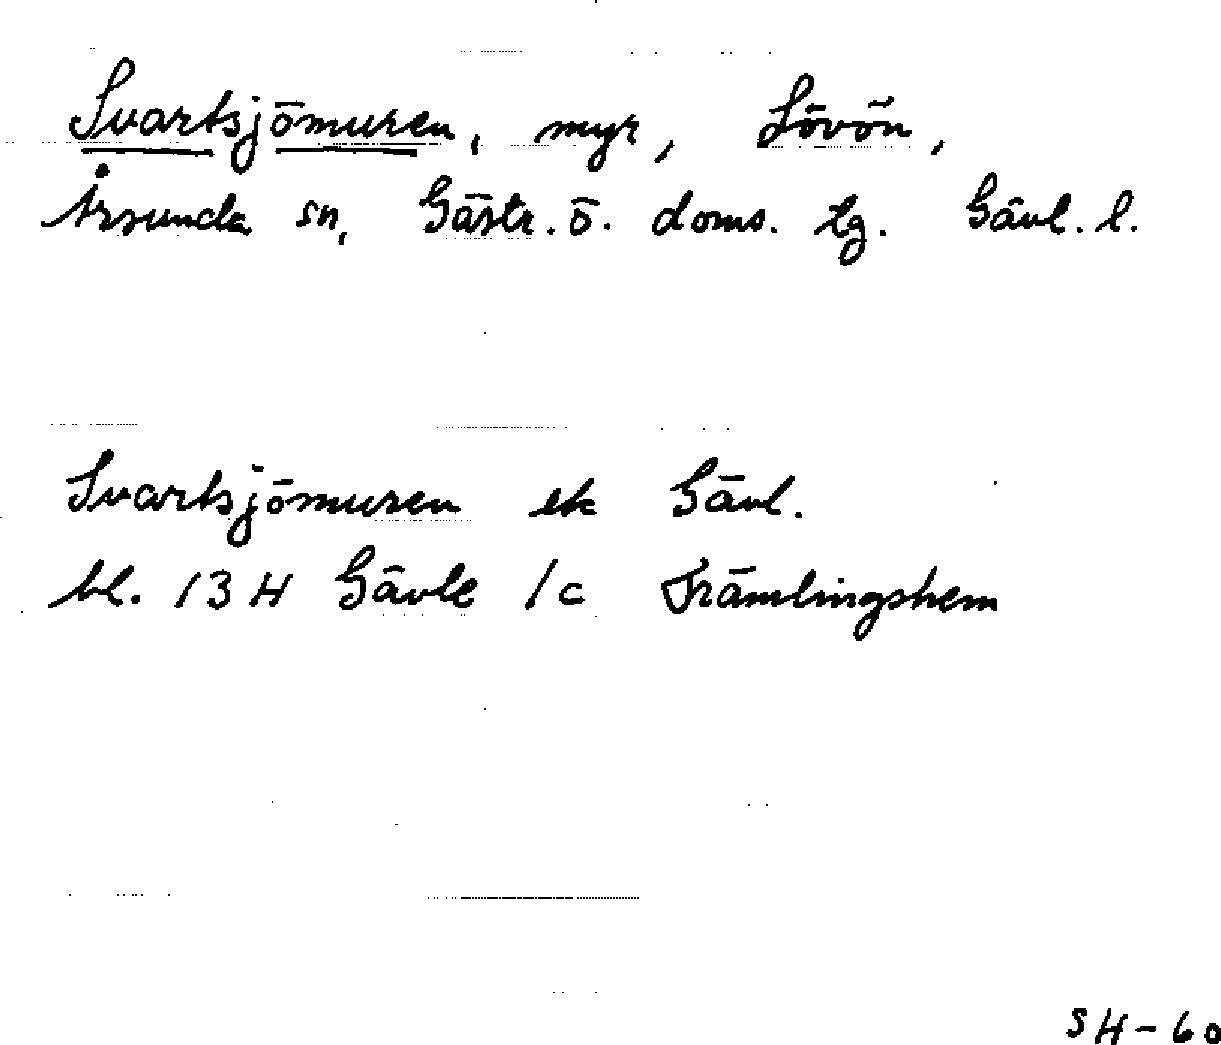 Svartsjömuren, myr, Lövön,
Årsunda sn, Gästr. ö. doms. tg. Gävl. l.
Svartsjömuren ek Gävl.
bl. 13 H Gävle 1c Främlingshem
SH-60